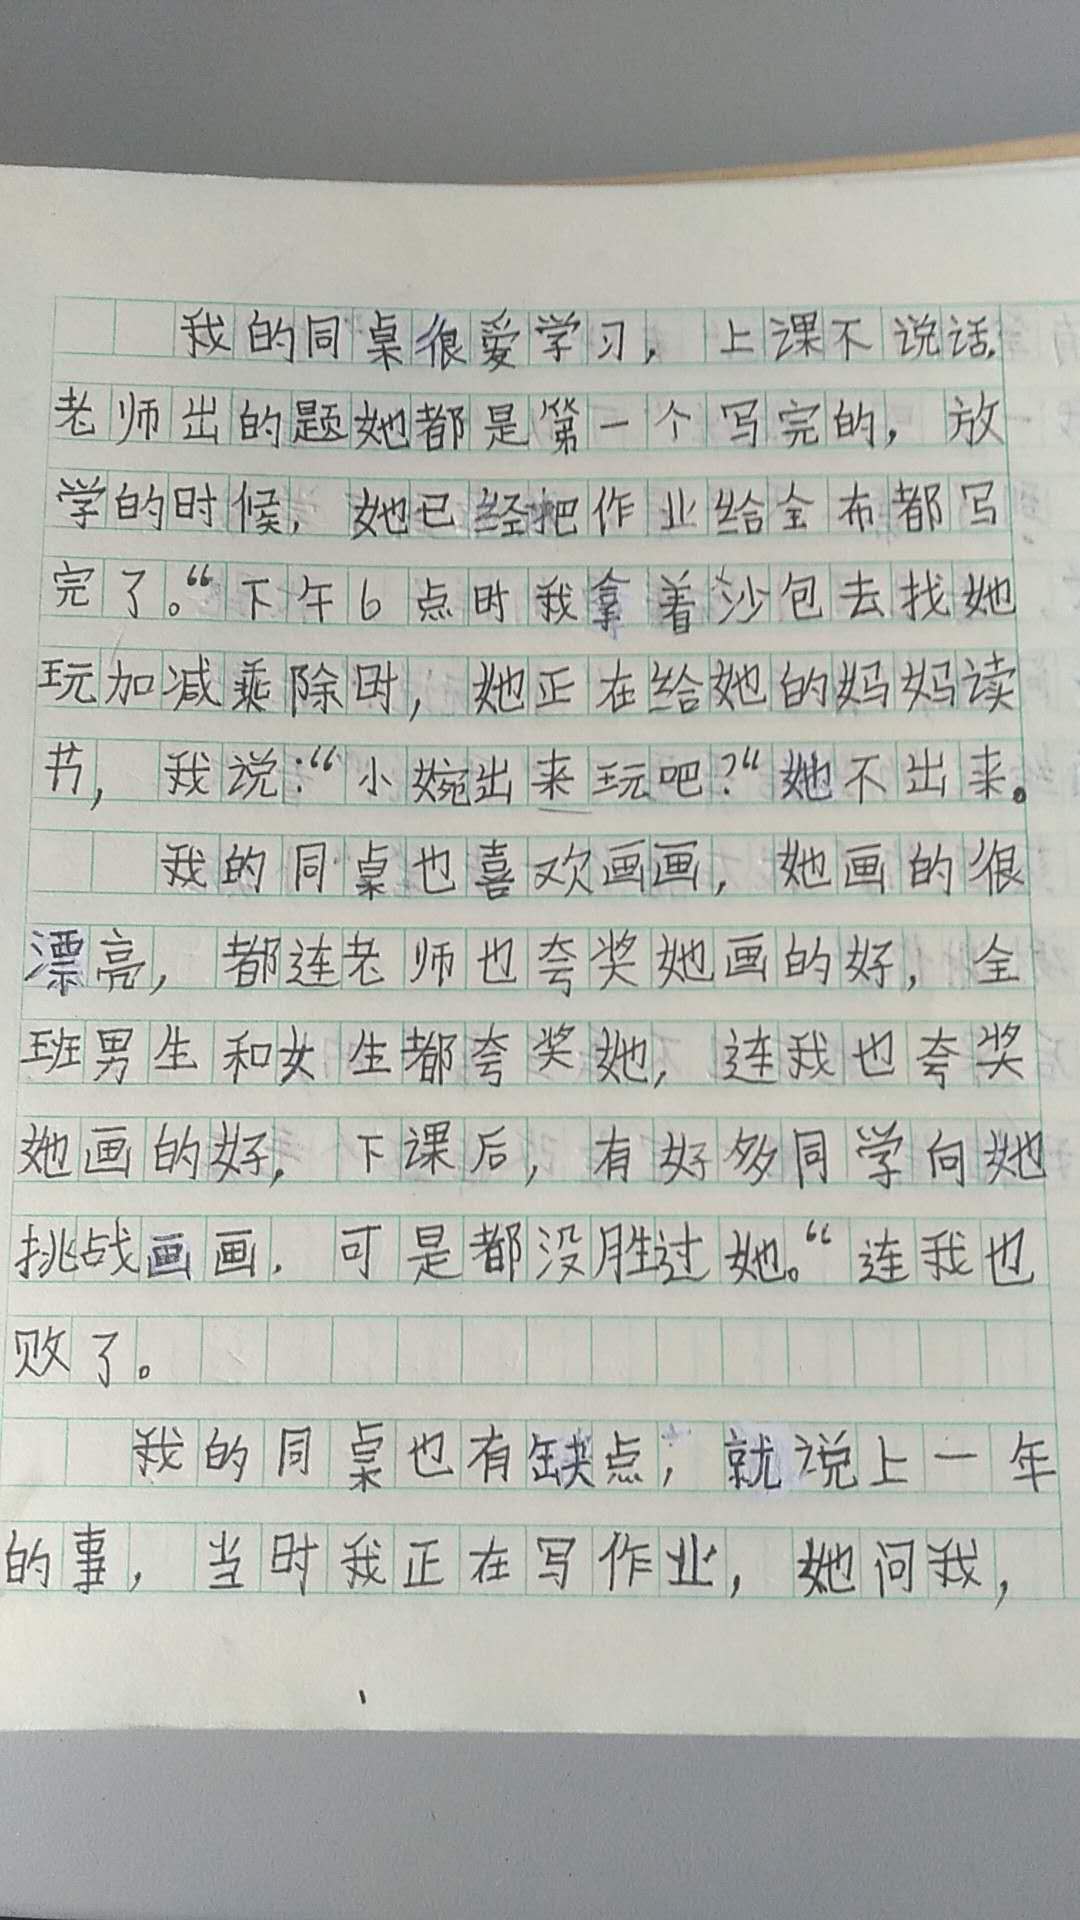 我的同桌很爱学习，上课不说话.
老师出的题她都是第一个写完的，放
学的时候，她已经把作业给全布都写
完了。“下午6点时我拿着沙包去找她
玩加减乘除时，她正在给她的妈妈读
书，我说：“小婉出来玩吧？“她不出来。
我的同桌也喜欢画画，她画的很
漂亮，都连老师也夸奖她画的好，全
班男生和女生都夸奖她，连我也夸奖
她画的好，下课后，有好多同学向她
挑战画画.可是都没胜过她。“连我也
败了。
我的同桌也有缺点；就说上一年
的事，当时我正在写作业，她问我，